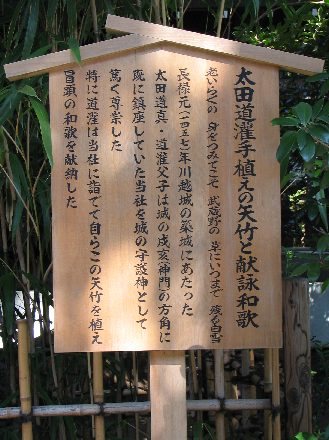 太田道灌手植えの矢竹と献詠和歌
老いらくの 身をつみてこそ 武蔵野の 草にいつまで 残る白雪
長禄元(一四五七)年川越城の築城にあたった
太田道真・道灌父子は城の戌亥(神門)の方角に
既に鎮座していた当社を城の守護神として
篤く尊崇した
特に道灌は当社に詣でて自らこの矢竹を植え
冒頭の和歌を献納した